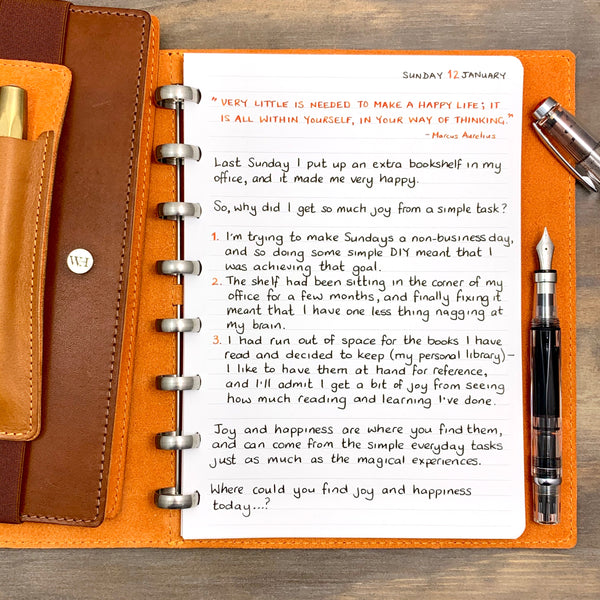 SUNDAY 12 JANUARY
"VERY LITTLE IS NEEDED TO MAKE A HAPPY LIFE; IT
IS ALL WITHIN YOURSELF, IN YOUR WAY OF THINKING."
- Marcus Aurelius
Last Sunday I put up an extra bookshelf in my
office, and it made me very happy.
So, why did I get so much joy from a simple task?
1. I'm trying to make Sundays a non-business day,
and so doing some simple DIY meant that I
was achieving that goal.
2. The shelf had been sitting in the corner of my
office for a few months, and finally fixing it
meant that I have one less thing nagging at
my brain.
3. I had run out of space for the books I have
read and decided to keep (my personal library) -
I like to have them at hand for reference,
and I'll admit I get a bit of joy from seeing
how much reading and learning I've done.
Joy and happiness are where you find them,
and can come from the simple everyday tasks
just as much as the magical experiences.
Where could you find joy and happiness
today...?